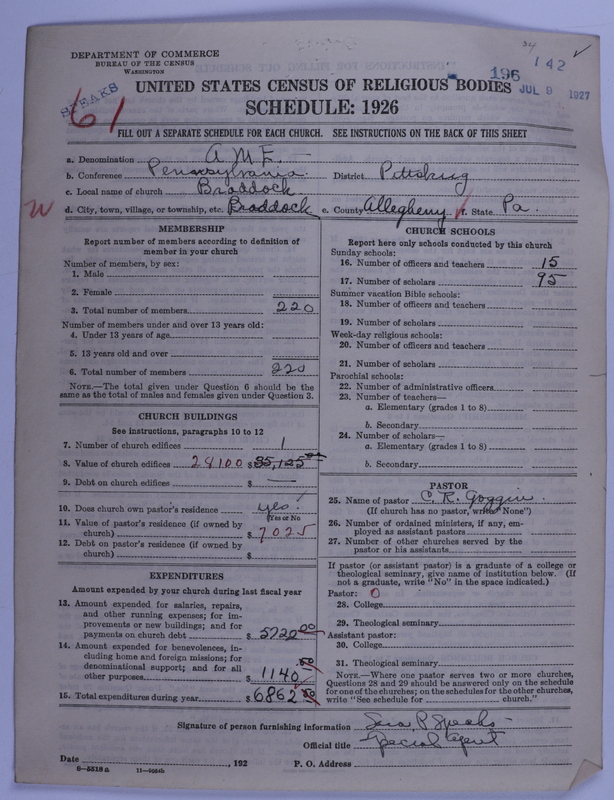 DEPARTMENT OF COMMERCE
BUREAU OF THE CENSUS
WASHINGTON
34
142 ✓
196
JUL 9 1927
SPEAKS
61
UNITED STATES CENSUS OF RELIGIOUS BODIES
SCHEDULE: 1926
FILL OUT A SEPARATE SCHEDULE FOR EACH CHURCH. SEE INSTRUCTIONS ON THE BACK OF THIS SHEET
a. Denomination A.M.E.
b. Conference Pennsylvania District Pittsburg
c. Local name of church Braddock
d. City, town, village, or township, etc. Braddock e. County Allegheny f. State Pa.
MEMBERSHIP
Report number of members according to definition of
member in your church
Number of members, by sex:
1. Male
2. Female
3. Total number of members 220
Number of members under and over 13 years old:
4. Under 13 years of age
5. 13 years old and over
6. Total number of members 220
NOTE.—The total given under Question 6 should be
the same as the total of males and females given under Question 3.
CHURCH BUILDINGS
See instructions, paragraphs 10 to 12
7. Number of church edifices 1
8. Value of church edifices 28100 $35,125.00
9. Debt on church edifices $ —
10. Does church own pastor's residence yes!
(Yes or No)
11. Value of pastor's residence (if owned by
church) $ 7025
12. Debt on pastor's residence (if owned by
church) $
EXPENDITURES
Amount expended by church during last fiscal year
13. Amount expended for salaries, repairs,
and other running expenses; for im-
provements or new buildings; and for
payments on church debt $ 5722 00
14. Amount expended for benevolences, in-
cluding home and foreign missions; for
denominational support; and for all
other purposes $ 1140 00
15. Total expenditures during year $ 6862 00
CHURCH SCHOOLS
Report here only schools conducted by this church
Sunday schools:
16. Number of officers and teachers 15
17. Number of scholars 95
Summer vacation Bible schools:
18. Number of officers and teachers
19. Number of scholars
Week-day religious schools:
20. Number of officers and teachers
21. Number of scholars
Parochial schools:
22. Number of administrative officers
23. Number of teachers—
a. Elementary (grades 1 to 8)
b. Secondary
24. Number of scholars—
a. Elementary (grades 1 to 8)
b. Secondary
PASTOR
25. Name of pastor C. R. Goggins
(If church has no pastor, write "None")
26. Number of ordained ministers, if any, em-
ployed as assistant pastors
27. Number of other churches served by the
pastor or his assistants
If pastor (or assistant pastor) is a graduate of a college or
theological seminary, give name of institution below. (If
not a graduate, write "No" in the space indicated.)
Pastor: 0
28. College
29. Theological seminary
Assistant pastor:
30. College
31. Theological seminary
NOTE.—Where one pastor serves two or more churches,
Questions 28 and 29 should be answered only on the schedule
for one of the churches; on the schedules for the other churches,
write "See schedule for church."
Signature of person furnishing information Sara P. Speaks
Official title Special Agent
Date , 192 P. O. Address
6—5518a 11—9264b